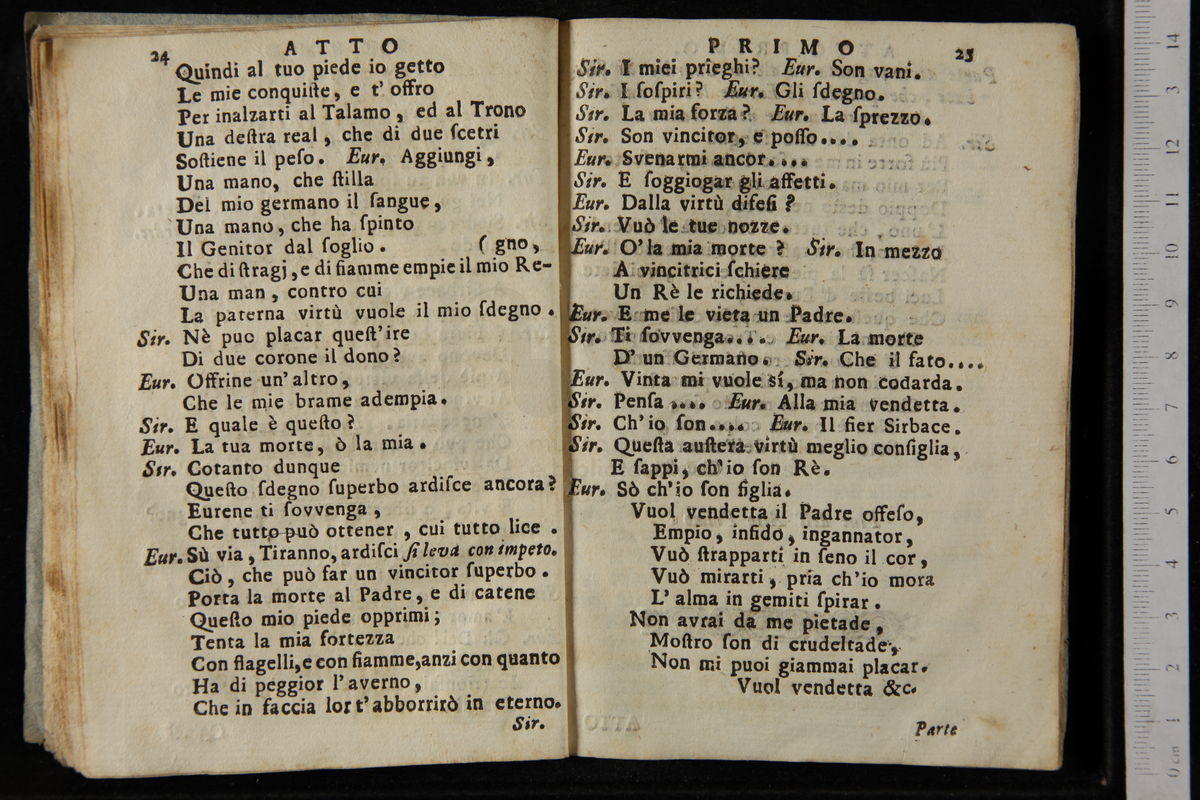 24 ATTO
Quindi al tuo piede io getto
Le mie conquiſte, e t' offro
Per inalzarti al Talamo, ed al Trono
Una deſtra real, che di due ſcetri
Soſtiene il peſo. Eur. Aggiungi,
Una mano, che ſtilla
Del mio germano il ſangue,
Una mano, che ha ſpinto
Il Genitor dal ſoglio. (gno,
Che di ſtragj, e di fiamme empie il mio Re-
Una man, contro cui
La paterna virtù vuole il mio ſdegno.
Sir. Nè puo placar queſt'ire
Di due corone il dono?
Eur. Offrine un'altro,
Che le mie brame adempia.
Sir. E quale è queſto?
Eur. La tua morte, ò la mia.
Sir. Cotanto dunque
Queſto ſdegno ſuperbo ardiſce ancora?
Eurene ti ſovvenga,
Che tutto può ottener, cui tutto lice.
Eur. Sù via, Tiranno, ardiſci ſi leva con impeto.
Ciò, che può far un vincitor ſuperbo.
Porta la morte al Padre, e di catene
Queſto mio piede opprimi;
Tenta la mia fortezza
Con flagelli, e con fiamme, anzi con quanto
Ha di peggior l'averno,
Che in faccia lor t'abborrirò in eterno.
Sir.
PRIMO 25
Sir. I miei prieghi? Eur. Son vani.
Sir. I ſoſpiri? Eur. Gli ſdegno.
Sir. La mia forza? Eur. La ſprezzo.
Sir. Son vincitor, e poſſo....
Eur. Svenarmi ancor....
Sir. E ſoggiogar gli affetti.
Eur. Dalla virtù difeſi?
Sir. Vuò le tue nozze.
Eur. O' la mia morte? Sir. In mezzo
A vincitrici ſchiere
Un Rè le richiede.
Eur. E me le vieta un Padre.
Sir. Ti ſovvenga.... Eur. La morte
D' un Germano. Sir. Che il fato....
Eur. Vinta mi vuole sí, ma non codarda.
Sir. Penſa .... Eur. Alla mia vendetta.
Sir. Ch'io ſon.... Eur. Il fier Sirbace.
Sir. Queſta auſtera virtù meglio conſiglia,
E ſappi, ch'io ſon Rè.
Eur. Sò ch'io ſon figlia.
Vuol vendetta il Padre offeſo,
Empio, infido, ingannator,
Vuò ſtrapparti in ſeno il cor,
Vuò mirarti, pría ch'io mora
L' alma in gemiti ſpirar.
Non avrai da me pietade,
Moſtro ſon di crudeltade,
Non mi puoi giammai placar.
Vuol vendetta &c.
Parte
0 cm 1 2 3 4 5 6 7 8 9 10 11 12 13 14